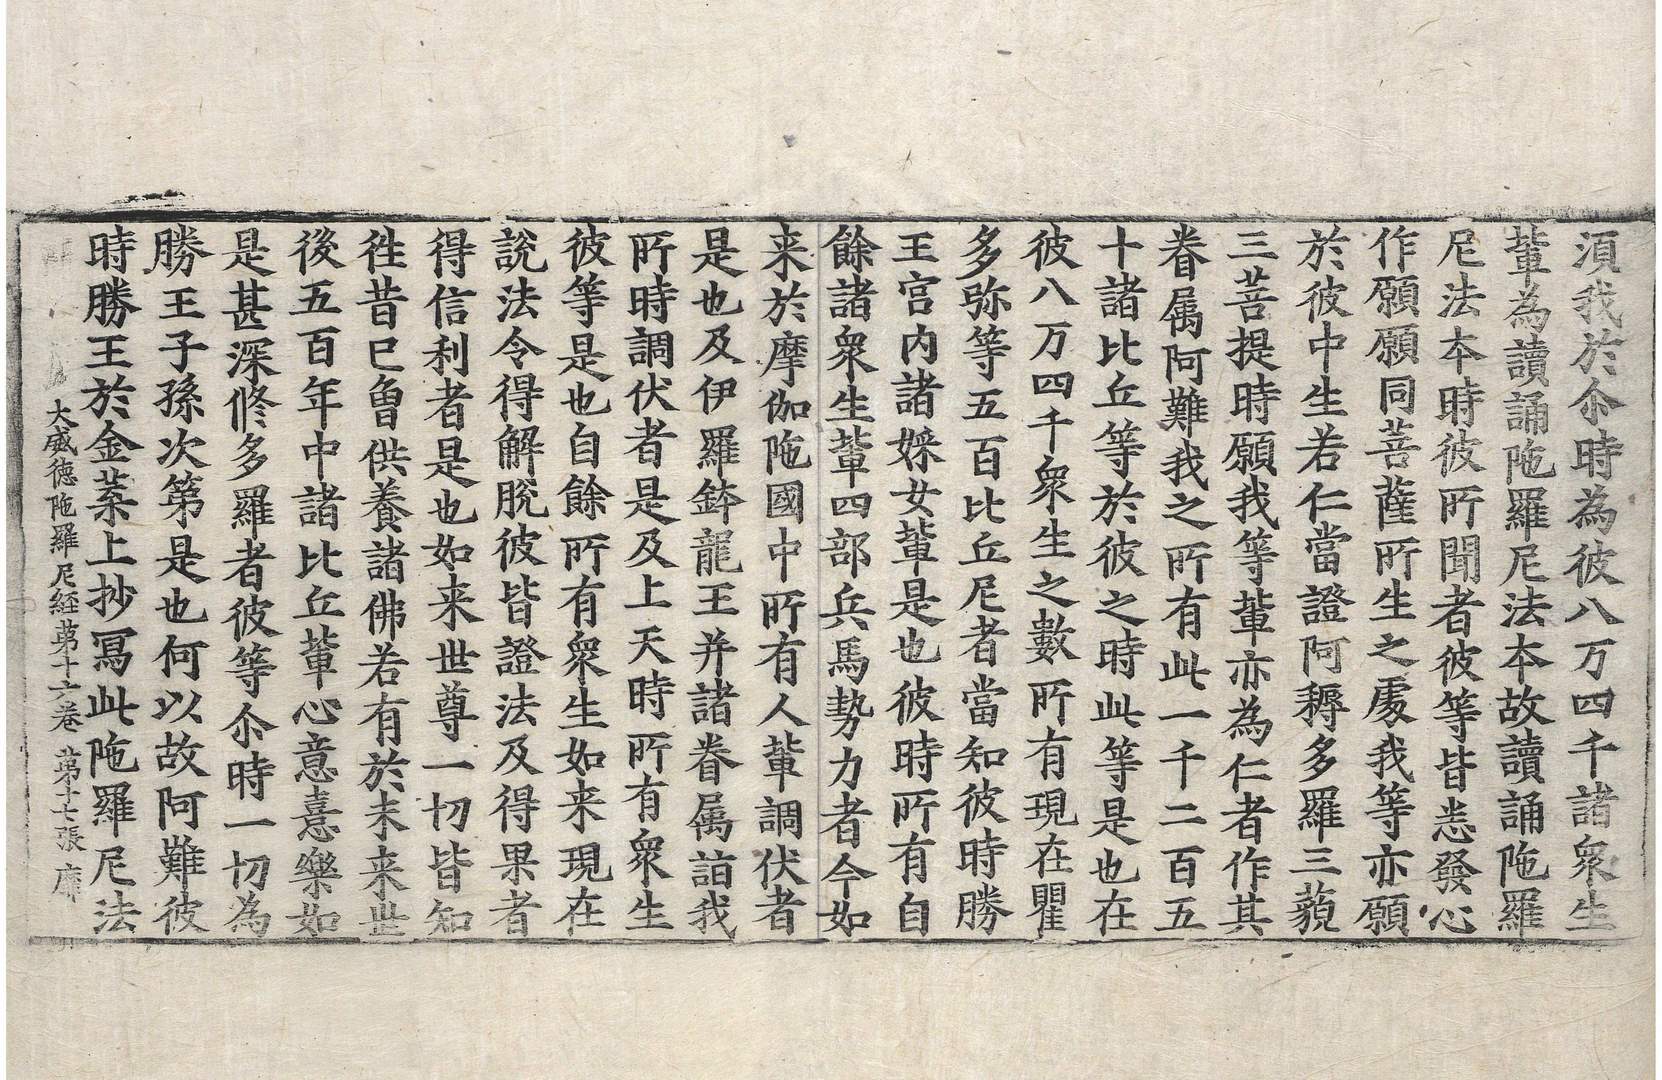 須我於尒時為彼八万四千諸衆生
輩為讀誦陁羅尼法夲故讀誦陁羅
尼法夲時彼所聞者彼等皆悉發心
作願願同菩薩所生之處我等亦願
於彼中生若仁當證阿耨多羅三藐
三菩提時願我等輩亦為仁者作其
眷属阿難我之所有此一千二百五
十諸比丘等於彼之時此等是也在
彼八万四千衆生之數所有現在瞿
多弥等五百比丘尼者當知彼時勝
王宫内諸婇女輩是也彼時所有自
餘諸衆生輩四部兵馬勢力者今如
来於摩伽陁國中所有人輩調伏者
是也及伊羅鉢龍王并諸眷属詣我
所時調伏者是及上天時所有衆生
彼等是也自餘所有衆生如来現在
説法令得解脫彼皆證法及得果者
得信利者是也如来世尊一切皆知
徃昔已曽供養諸佛若有於未来世
後五百年中諸比丘輩心意憙樂如
是甚深修多羅者彼等尒時一切為
勝王子孫次第是也何以故阿難彼
時勝王於金葉上抄冩此陁羅尼法
大威德陁羅尼経苐十六卷 苐十七張 靡